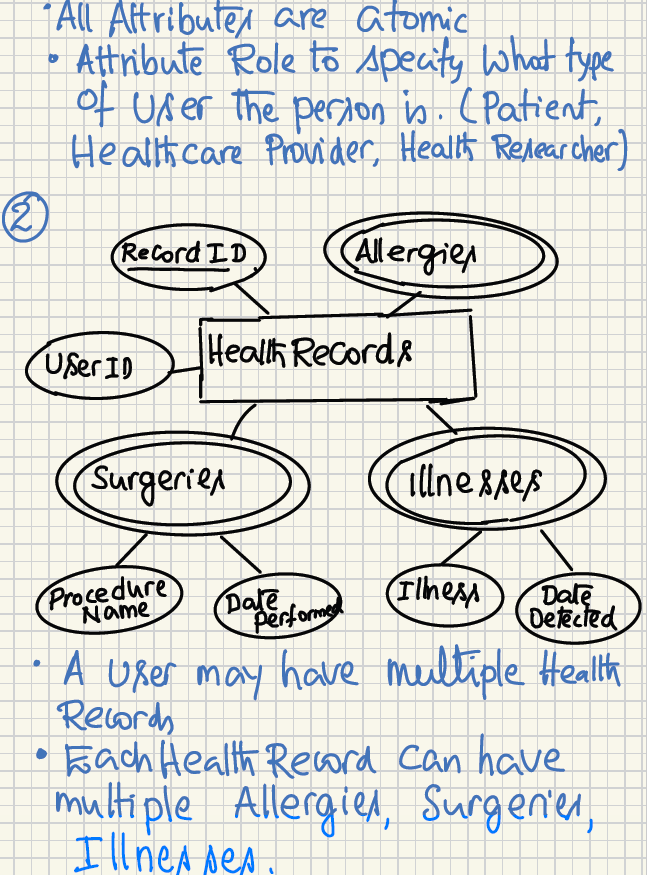 • All Attributes are atomic
• Attribute Role to specify what type
of user the person is. (Patient,
Healthcare Provider, Health Researcher)
2
Record ID
Allergies
User ID
Health Records
Surgeries
Illnesses
Procedure
Name
Date
Performed
Illness
Date
Detected
• A User may have multiple Health
Records
• Each Health Record can have
multiple Allergies, Surgeries,
Illnesses.